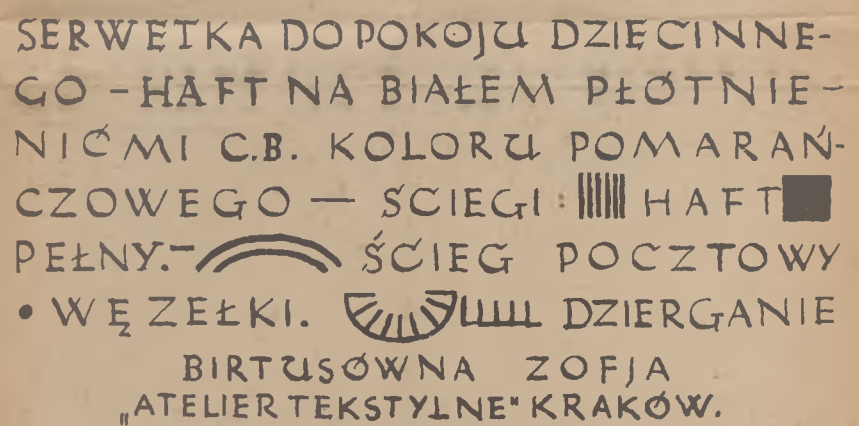 SERWETKA DO POKOJU DZIĘCINNE-
GO - HAFT NA BIAŁEM PŁÓTNIE -
NIĆMI C.B. KOLORU POMARAŃ-
CZOWEGO — SCIEGI: HAFT
PEŁNY. - ŚCIEG POCZTOWY
• WĘZEŁKI. DZIERGANIE
BIRTUSÓWNA ZOFJA
„ATELIER TEKSTYLNE" KRAKÓW.